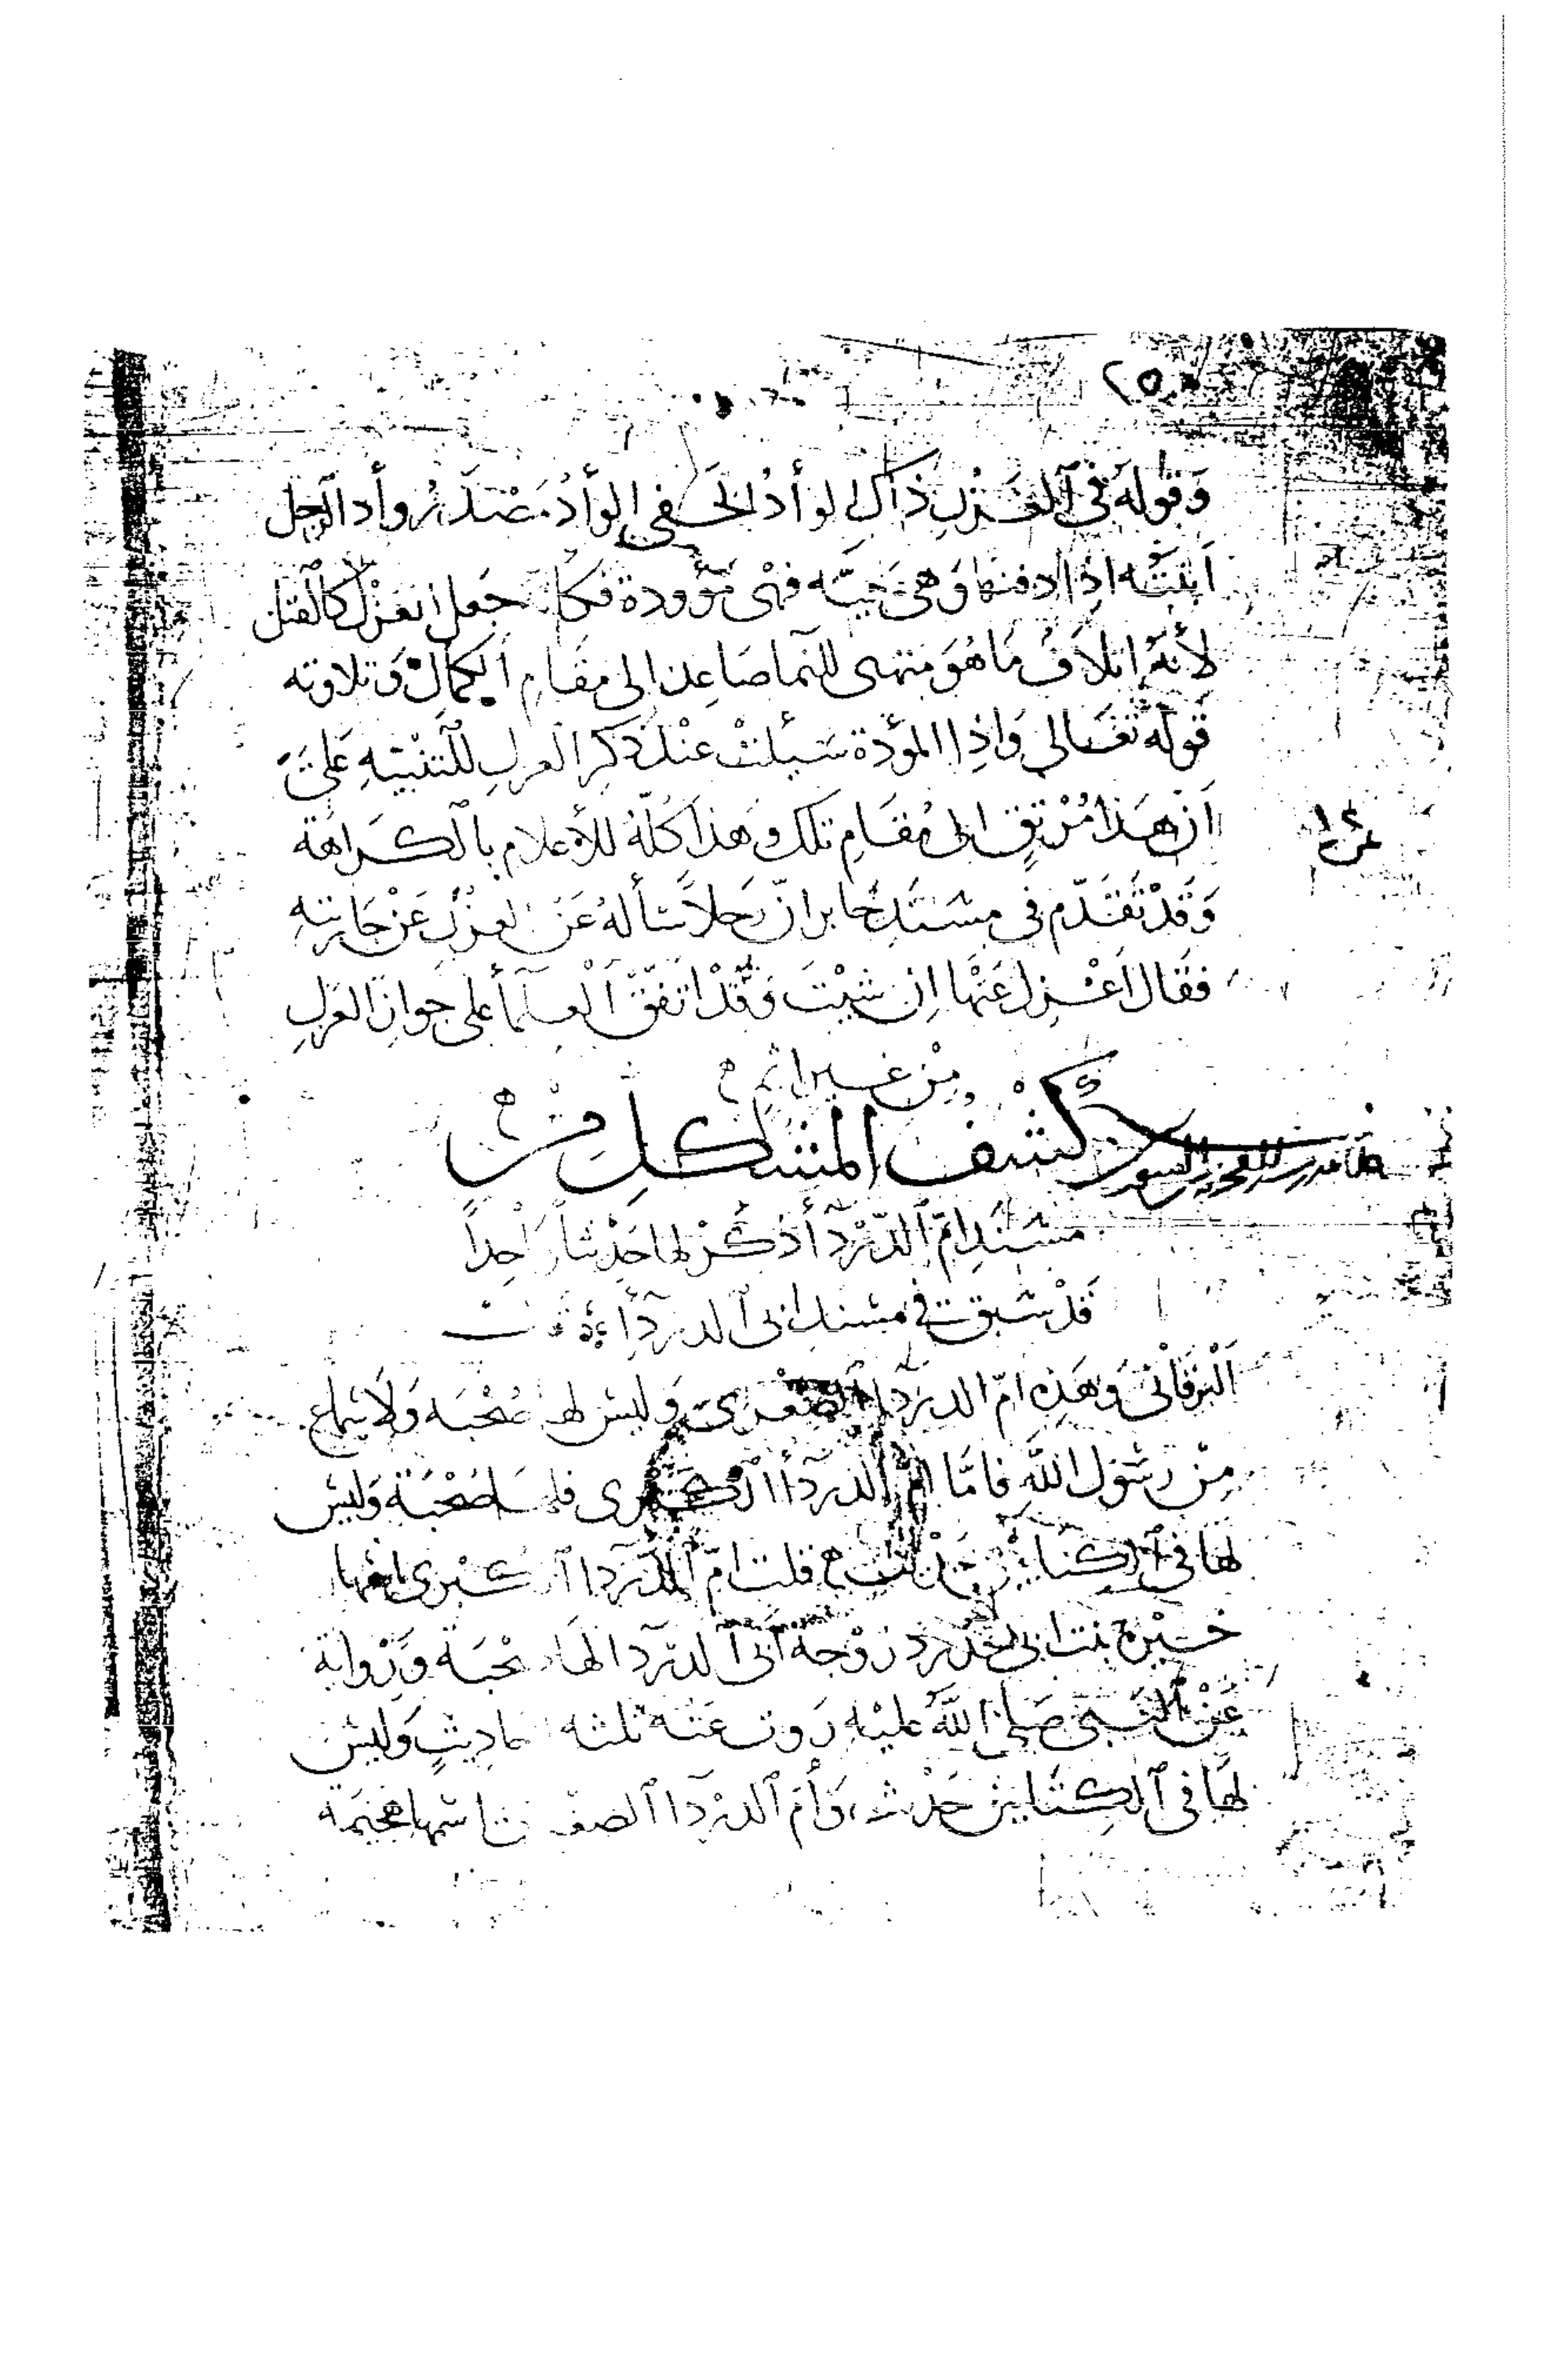 ٢٥٠
وَقَولُهُ فِي ٱلعَزْلِ ذَاكَ الوأدُ الخَفي الوَأدُ مَصْدَرُ وأد الرَّجل
ابنَتَه اذا دفنها وَهي حَيّه فهْي مَوْؤودة فكأنه جَعل العَزْل كالقتل
لأنّهُ اتلاَفُ مَا هُوَ منتهى للنما صَاعِدا الى مقَامِ الكمال وَتلاوته
قَولَه تعَالى وَاذِا الموؤدة سَئِلتْ عنْد ذكر العزلِ للتَنْبيْهِ عَلى
اَن هَذا مُرْتقٍ الى مُقَامِ تلك وَهذا كلّهُ للأعلام بالكَراهَة
وَقَدْ تقَدّم في مسْنَدِ جابر انّ رَجلاً سَألهُ عَن العَزْلِ عَنْ جَاريتهِ
فقَال اعْزِل عَنْهَا اِن شِيْتَ وَقَدْ اتفَقَ العلمآ على جَوازِ العَزلِ
مِنْ غَير اثم
كشف المشكلِ من
مسْنَدِ امّ الدّرْدَآ أذكُرُ لها حَدْيثاً وَاحِداً
قَدْ سَبق في مسْند ابى الدردآء
البَرقانى وَهَذِه امّ الدرْدَا الصّغْرى وَليس لها صُحْبَه وَلاَ سَماع
مِنْ رسَول الله فامَّا امّ الدردآ الكُبْرى فلهَا صُحْبَة وَليسَ
لهَا في الكتابَين حَديث قلت امّ الدّردا الكُبْرى اسْمها
خَيْرة بنت ابى حَدْرد زوْجة ابى الدرْدا لهَا صُحْبَة وَرَواية
عَنْ النّبيّ صَلى اللهُ عليْه رَوت عَنْه ثلثه احَاديثٍ وَليسَ
لهَا فى الكِتابين حَديث وَأم الدرْدَآ الصغرى اسْمها هجَيمَة